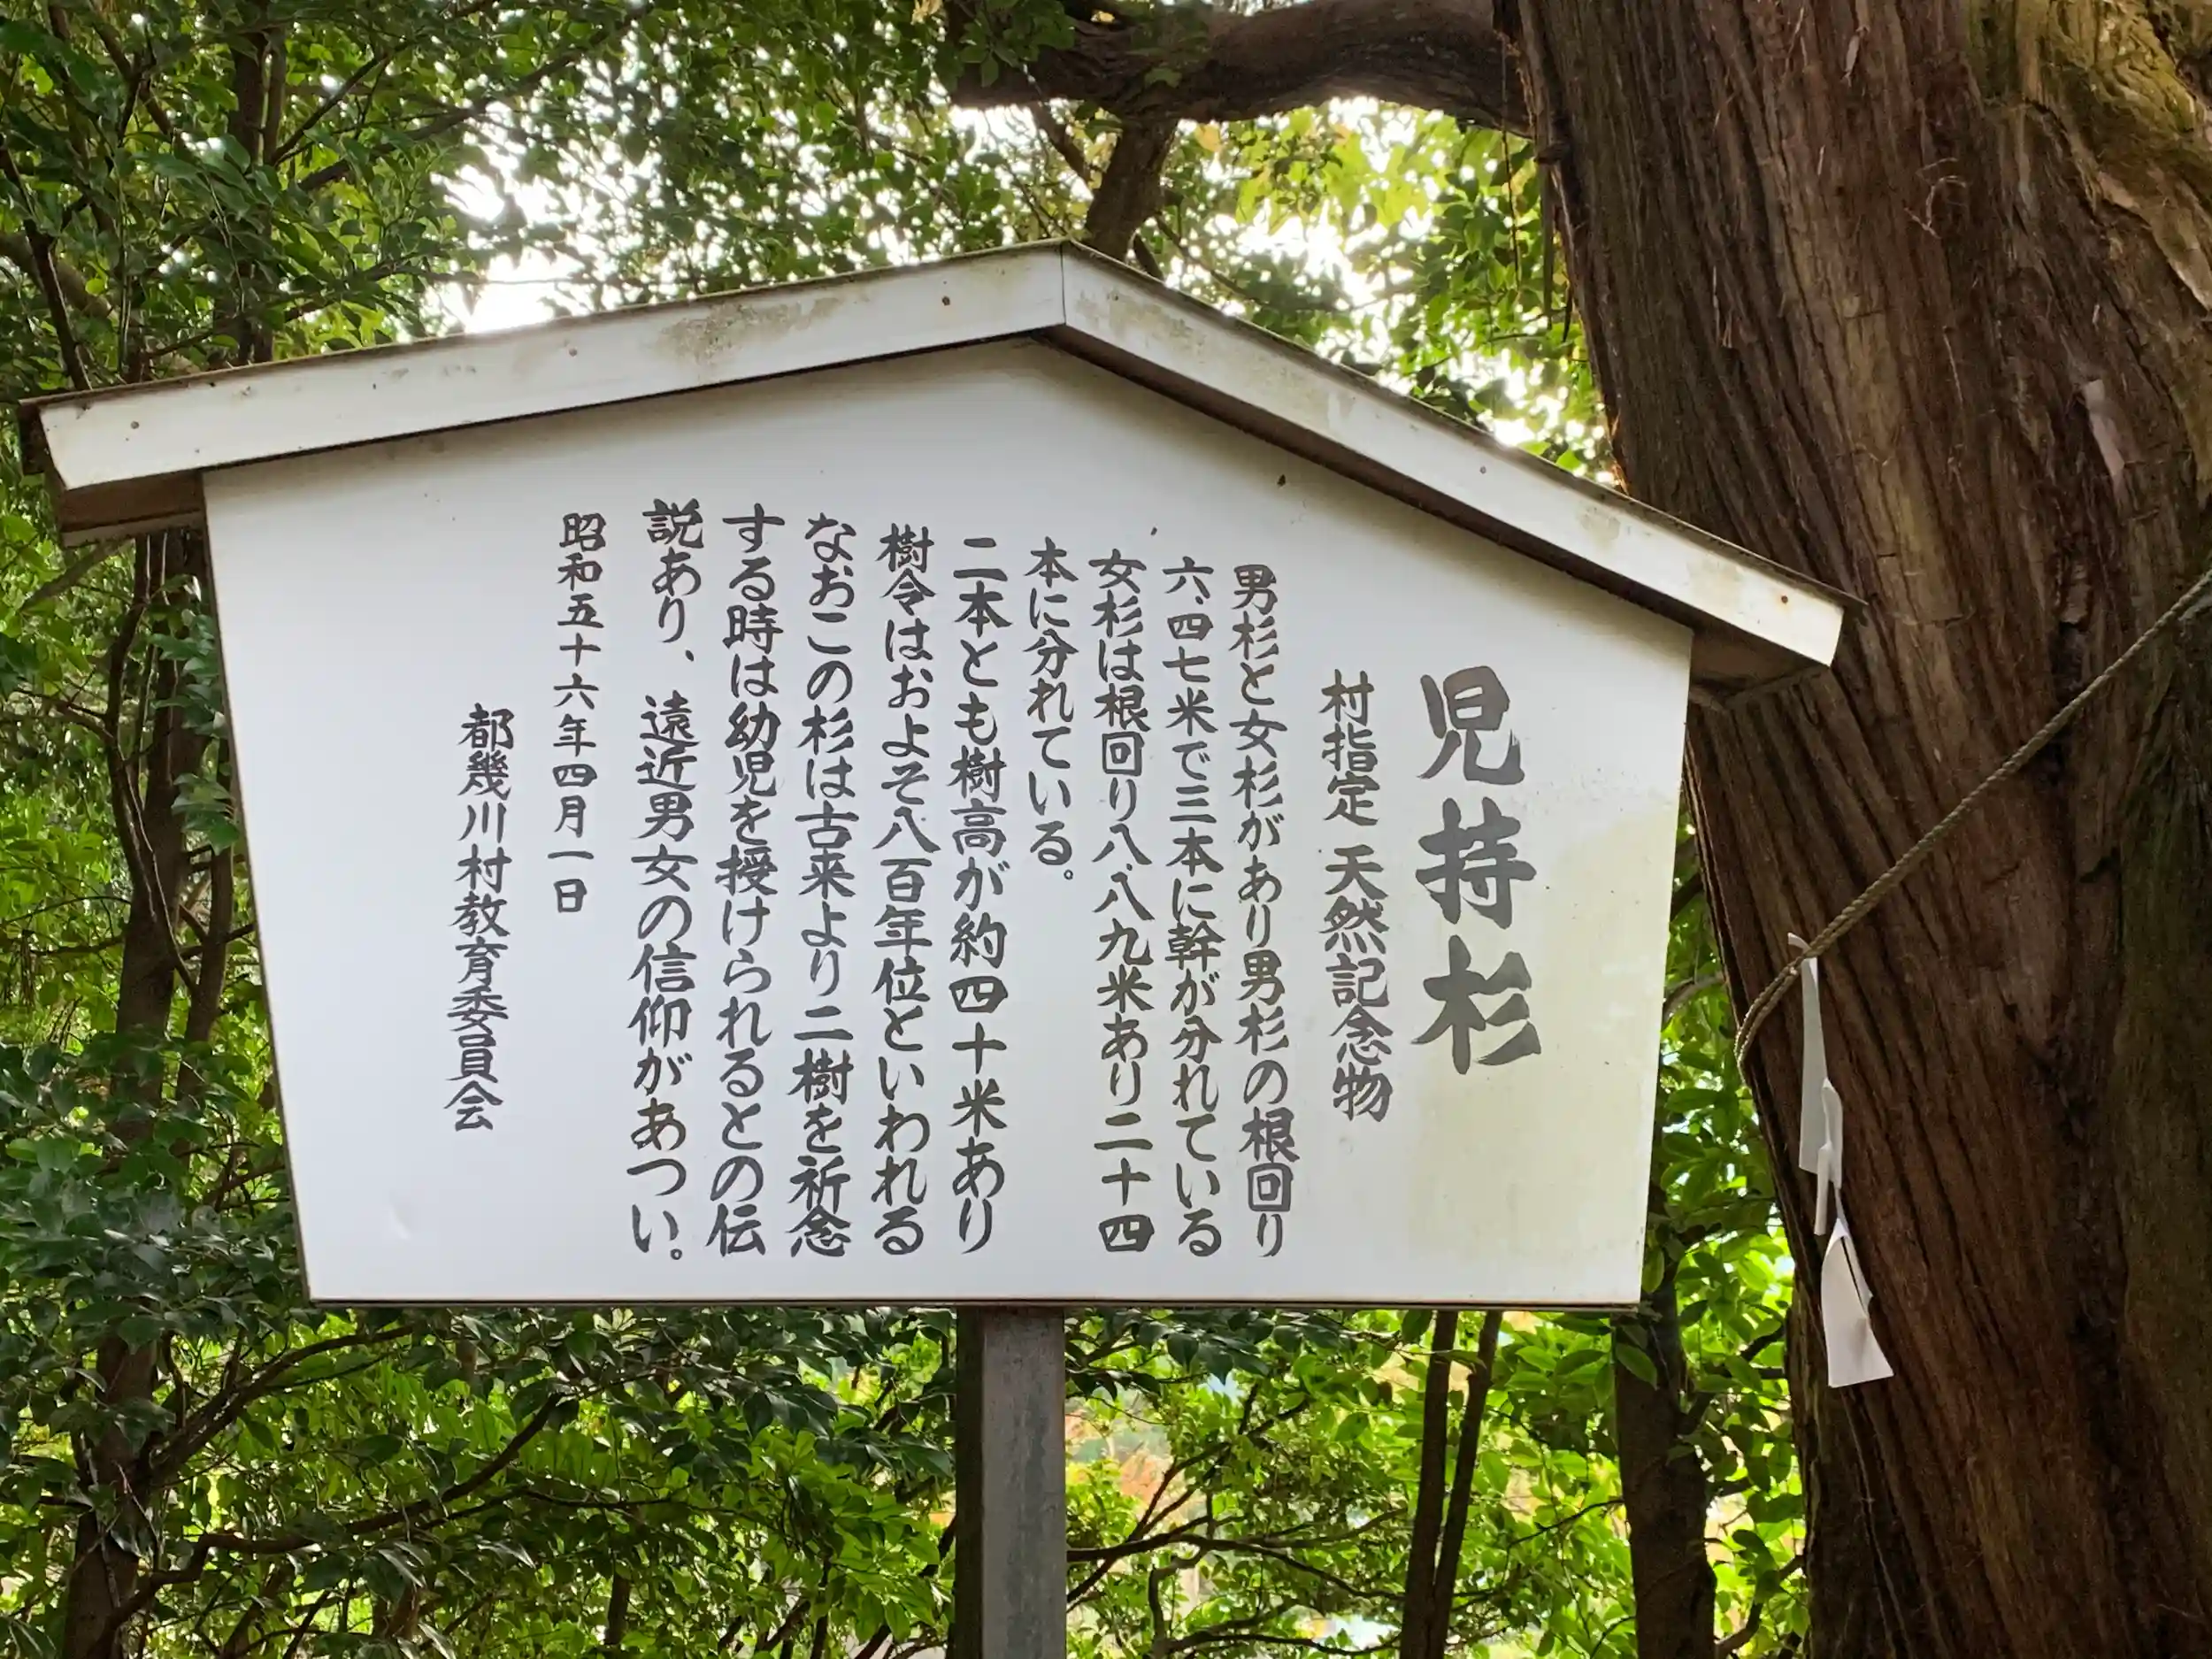 児持杉
村指定 天然記念物
男杉と女杉があり男杉の根回り
六、四七米で三本に幹が分れている
女杉は根回り八、八九米あり二十四
本に分れている。
二本とも樹高が約四十米あり
樹令はおよそ八百年位といわれる
なおこの杉は古来より二樹を祈念
する時は幼児を授けられるとの伝
説あり、遠近男女の信仰があつい。
昭和五十六年四月一日
都幾川村教育委員会